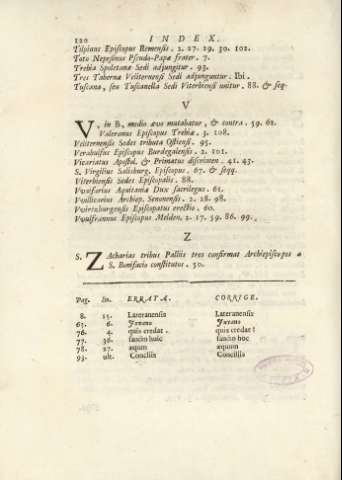 120 INDEX.
Tilpinus Episcopus Remensis. 2. 27. 29. 30. 102.
Toto Nepesinus Pseudo-Papæ frater. 7.
Trebia Spoletanæ Sedi adjungitur. 93.
Tres Tabernæ Veliternensi Sedi adjunguntur. Ibi.
Tuscana, seu Tuscanella Sedi Viterbiensi unitur. 88. & seq.
V
V, in B, medio ævo mutabatur, & contra. 59. 62.
Valeranus Episcopus Trebiæ. 3. 108.
Veliternensis Sedes tributa Ostiensi. 95.
Verabulfus Episcopus Burdegalensis. 2. 101.
Vicariatus Apostol. & Primatus discrimen. 41. 43.
S. Virgilius Salisburg. Episcopus. 67. & seqq.
Viterbiensis Sedes Episcopalis. 88.
Vvaifarius Aquitaniæ Dux sacrilegus. 61.
Vvillicarius Archiep. Senonensis. 2. 28. 98.
Vvirtzburgensis Episcopatus erectio. 60.
Vvulframnus Episcopus Melden. 2. 17. 59. 86. 99.
Z
S. ZAcharias tribus Palliis tres confirmat Archiepiscopos a
S. Bonifacio constitutos. 50.
Pag. lin. ERRATA. CORRIGE.
8. 15. Lateranensis Lateranensis
63. 6. Juxans Juxans
76. 4. quis credat . quis credat ?
77. 36. sancto huic sancto hoc
78. 27. æqum æquum
93. ult. Conciliis Conciliis